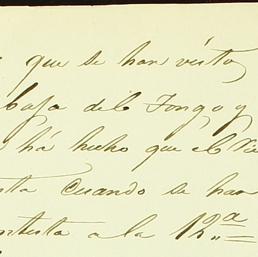 que se han visto
baja del Tongo y
há hecho que el
Cuando se han
a la 12ª